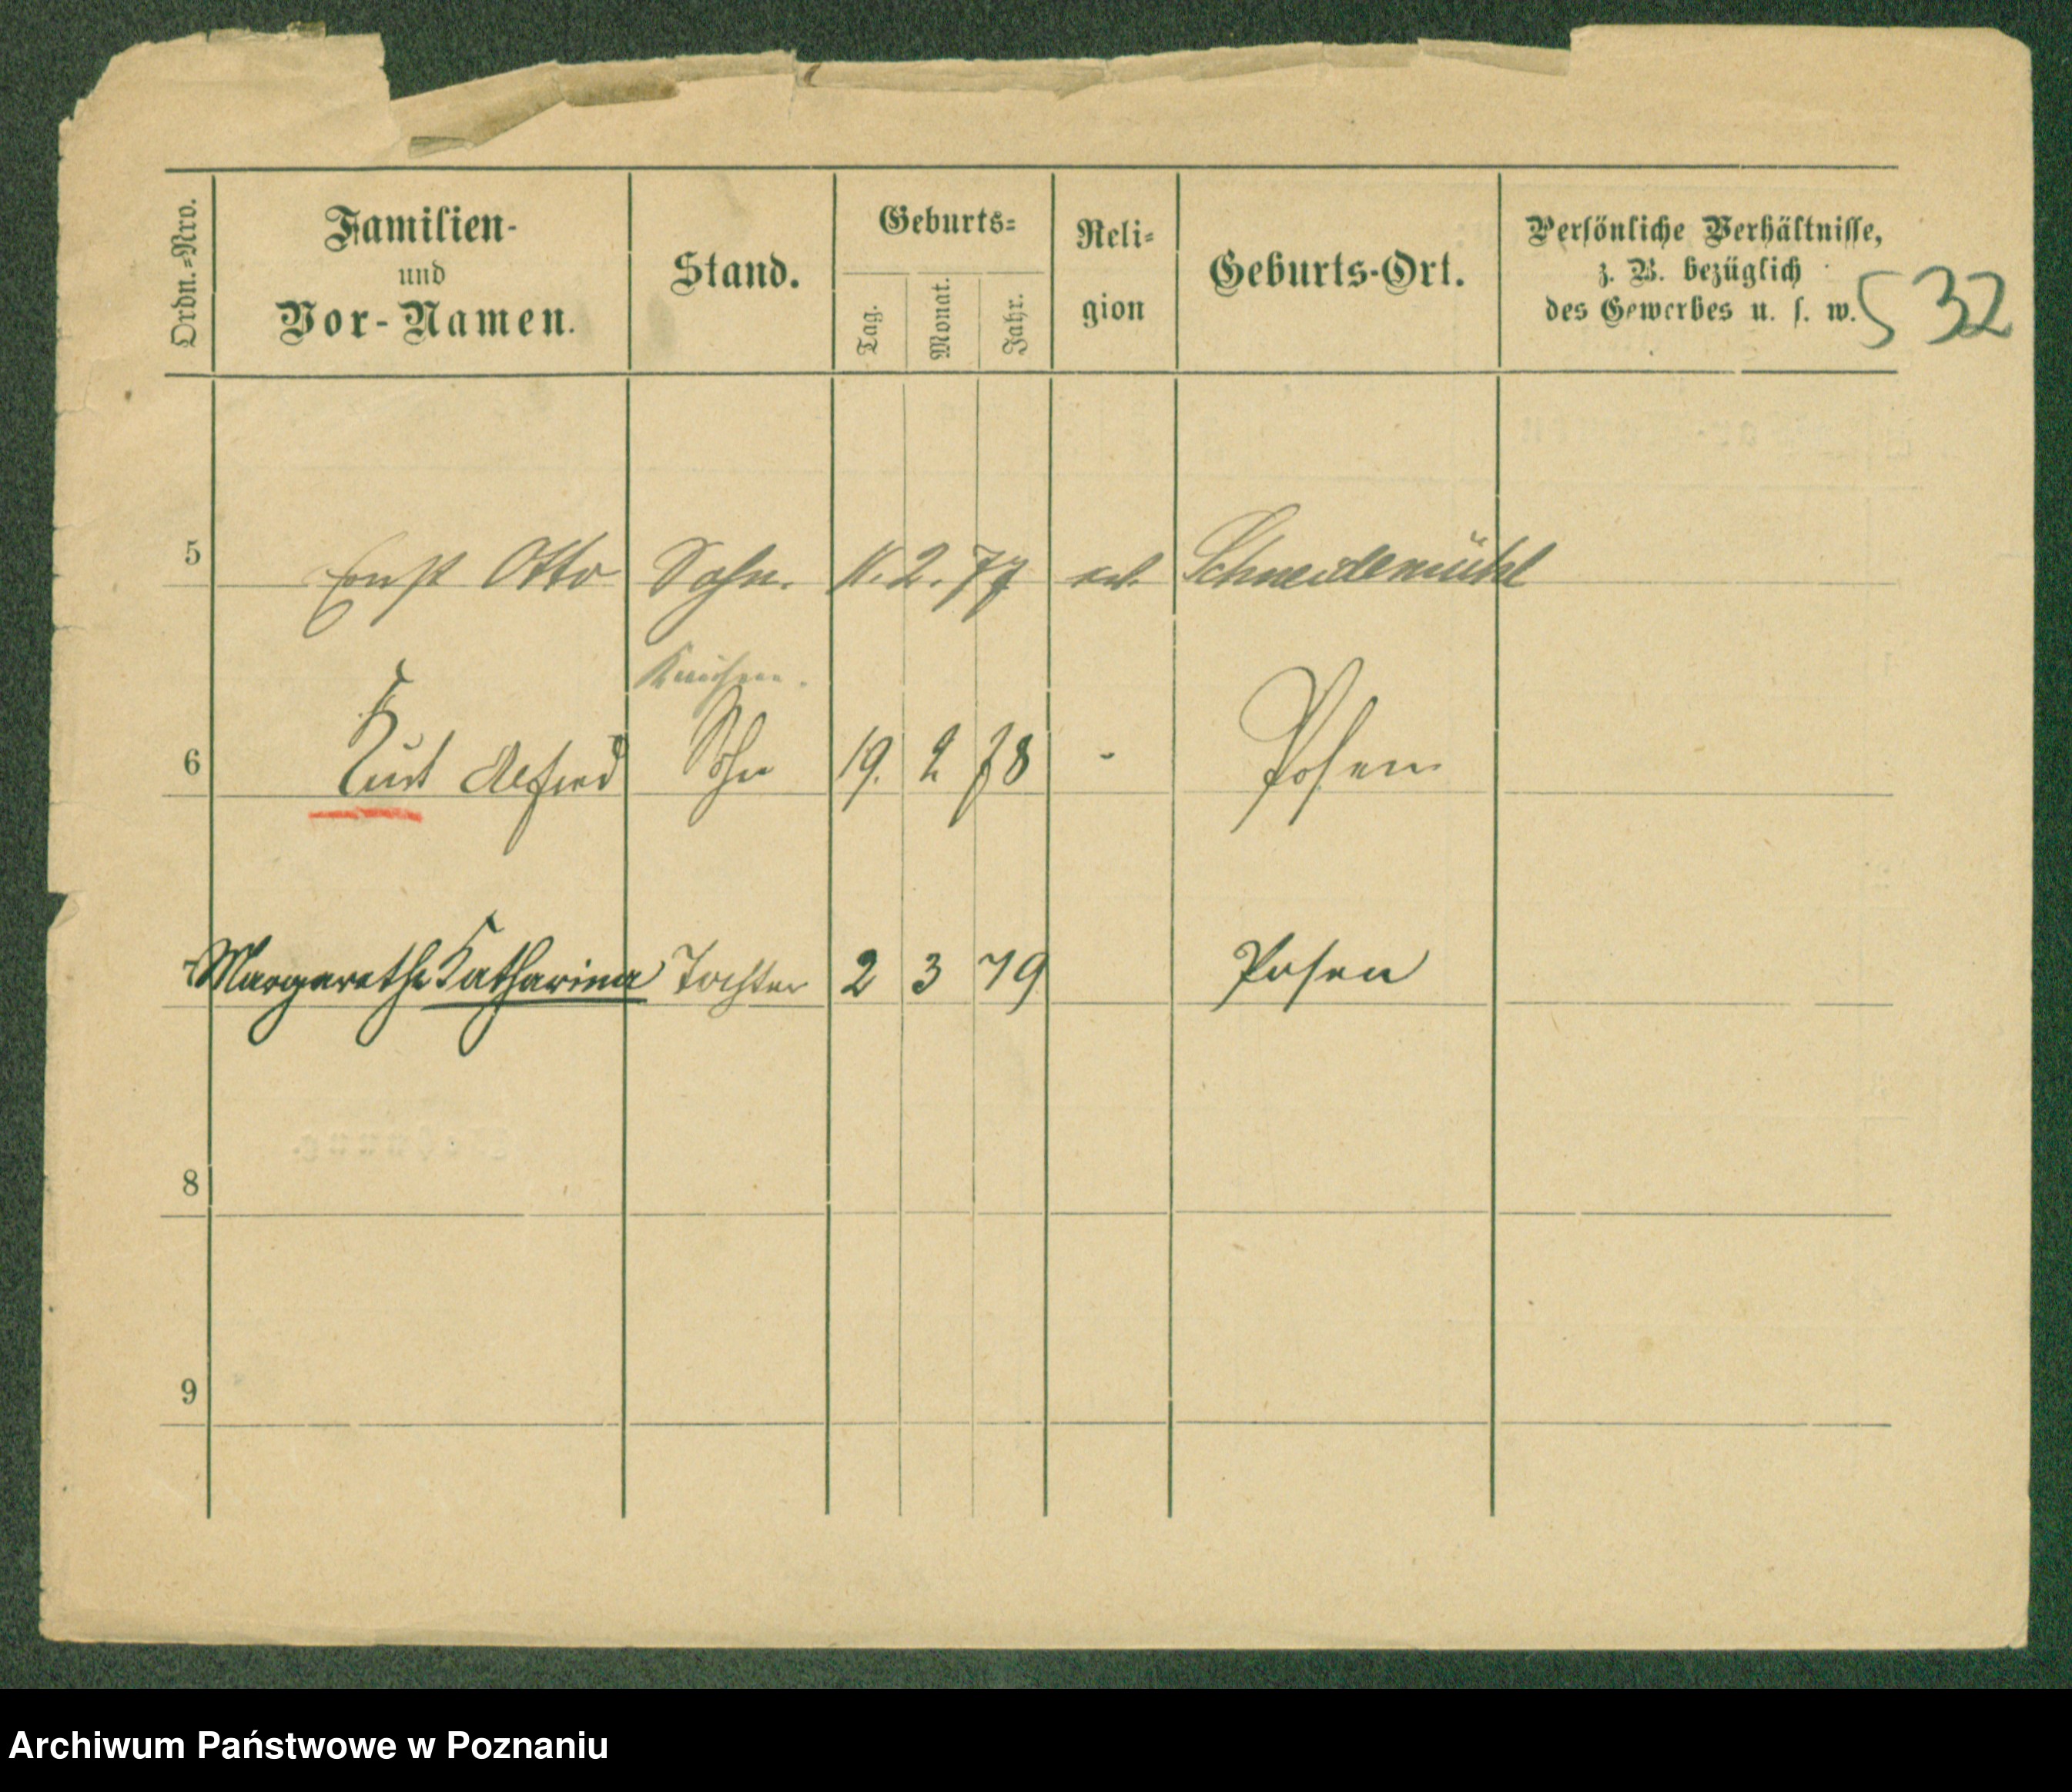 Ordn.-Nro.
Familien-
und
Vor-Namen.
Stand.
Geburts-
Tag.
Monat.
Jahr.
Reli-
gion
Geburts-Ort.
Persönliche Verhältnisse,
z. B. bezüglich
des Gewerbes u. s. w.
532
5 Ernst Otto Sohn. 2. 77 Schneidemühl
6 Kurt Alfred Sohn 19. 2 78 - Posen
7 Margarethe Katharina Tochter 2 3 79 Posen
8
9
Archiwum Państwowe w Poznaniu